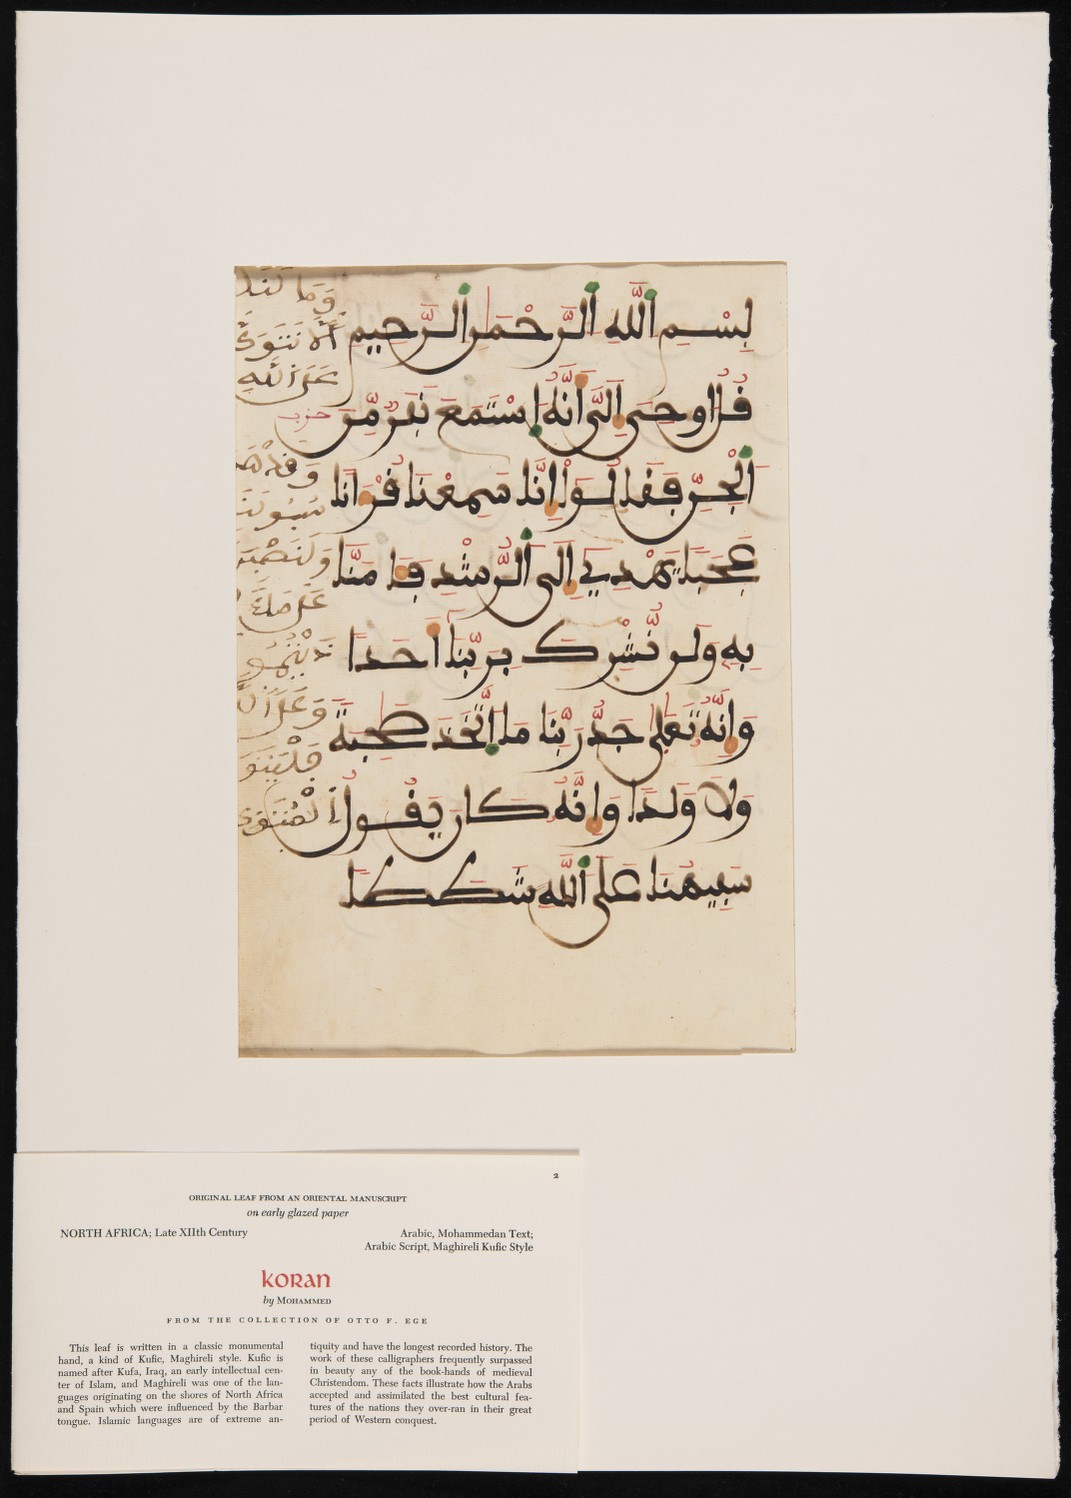 بِسْمِ اللَّهِ الرَّحْمَٰنِ الرَّحِيمِ
قُلُ اوحِيَ إِلَيَّ أَنَّهُ اسْتَمَعَ نَفَرٌ مِّنَ
الْجِنِّ فَقَالُوا إِنَّا سَمِعْنَا قُرْآنًا
عَجَبًا يَهْدِي إِلَى الرُّشْدِ فَآمَنَّا
بِهِ وَلَن نُّشْرِكَ بِرَبِّنَا أَحَدًا
وَإِنَّهُ تَعَٰلَىٰ جَدُّ رَبِّنَا مَا اتَّخَذَ صَٰحِبَةً
وَلَا وَلَدًا وَإِنَّهُ كَانَ يَقُولُ
سَفِيهُنَا عَلَى اللَّهِ شَطَطًا
وَمَا لَنَا
أَلَّا نَتَوَكَّ
عَلَى اللَّهِ
حزب
وَقَدْ هَ
سُبُلَنَا
وَلَنَصْبِرَ
عَلَىٰ مَا
ءَاذَيْتُمُو
وَعَلَى ال
فَلْيَتَوَ
الْمُتَوَ
2
ORIGINAL LEAF FROM AN ORIENTAL MANUSCRIPT
on early glazed paper
NORTH AFRICA; Late XIIth Century
Arabic, Mohammedan Text;
Arabic Script, Maghireli Kufic Style
KORAN
by MOHAMMED
FROM THE COLLECTION OF OTTO F. EGE
This leaf is written in a classic monumental
hand, a kind of Kufic, Maghireli style. Kufic is
named after Kufa, Iraq, an early intellectual cen-
ter of Islam, and Maghireli was one of the lan-
guages originating on the shores of North Africa
and Spain which were influenced by the Barbar
tongue. Islamic languages are of extreme an-
tiquity and have the longest recorded history. The
work of these calligraphers frequently surpassed
in beauty any of the book-hands of medieval
Christendom. These facts illustrate how the Arabs
accepted and assimilated the best cultural fea-
tures of the nations they over-ran in their great
period of Western conquest.